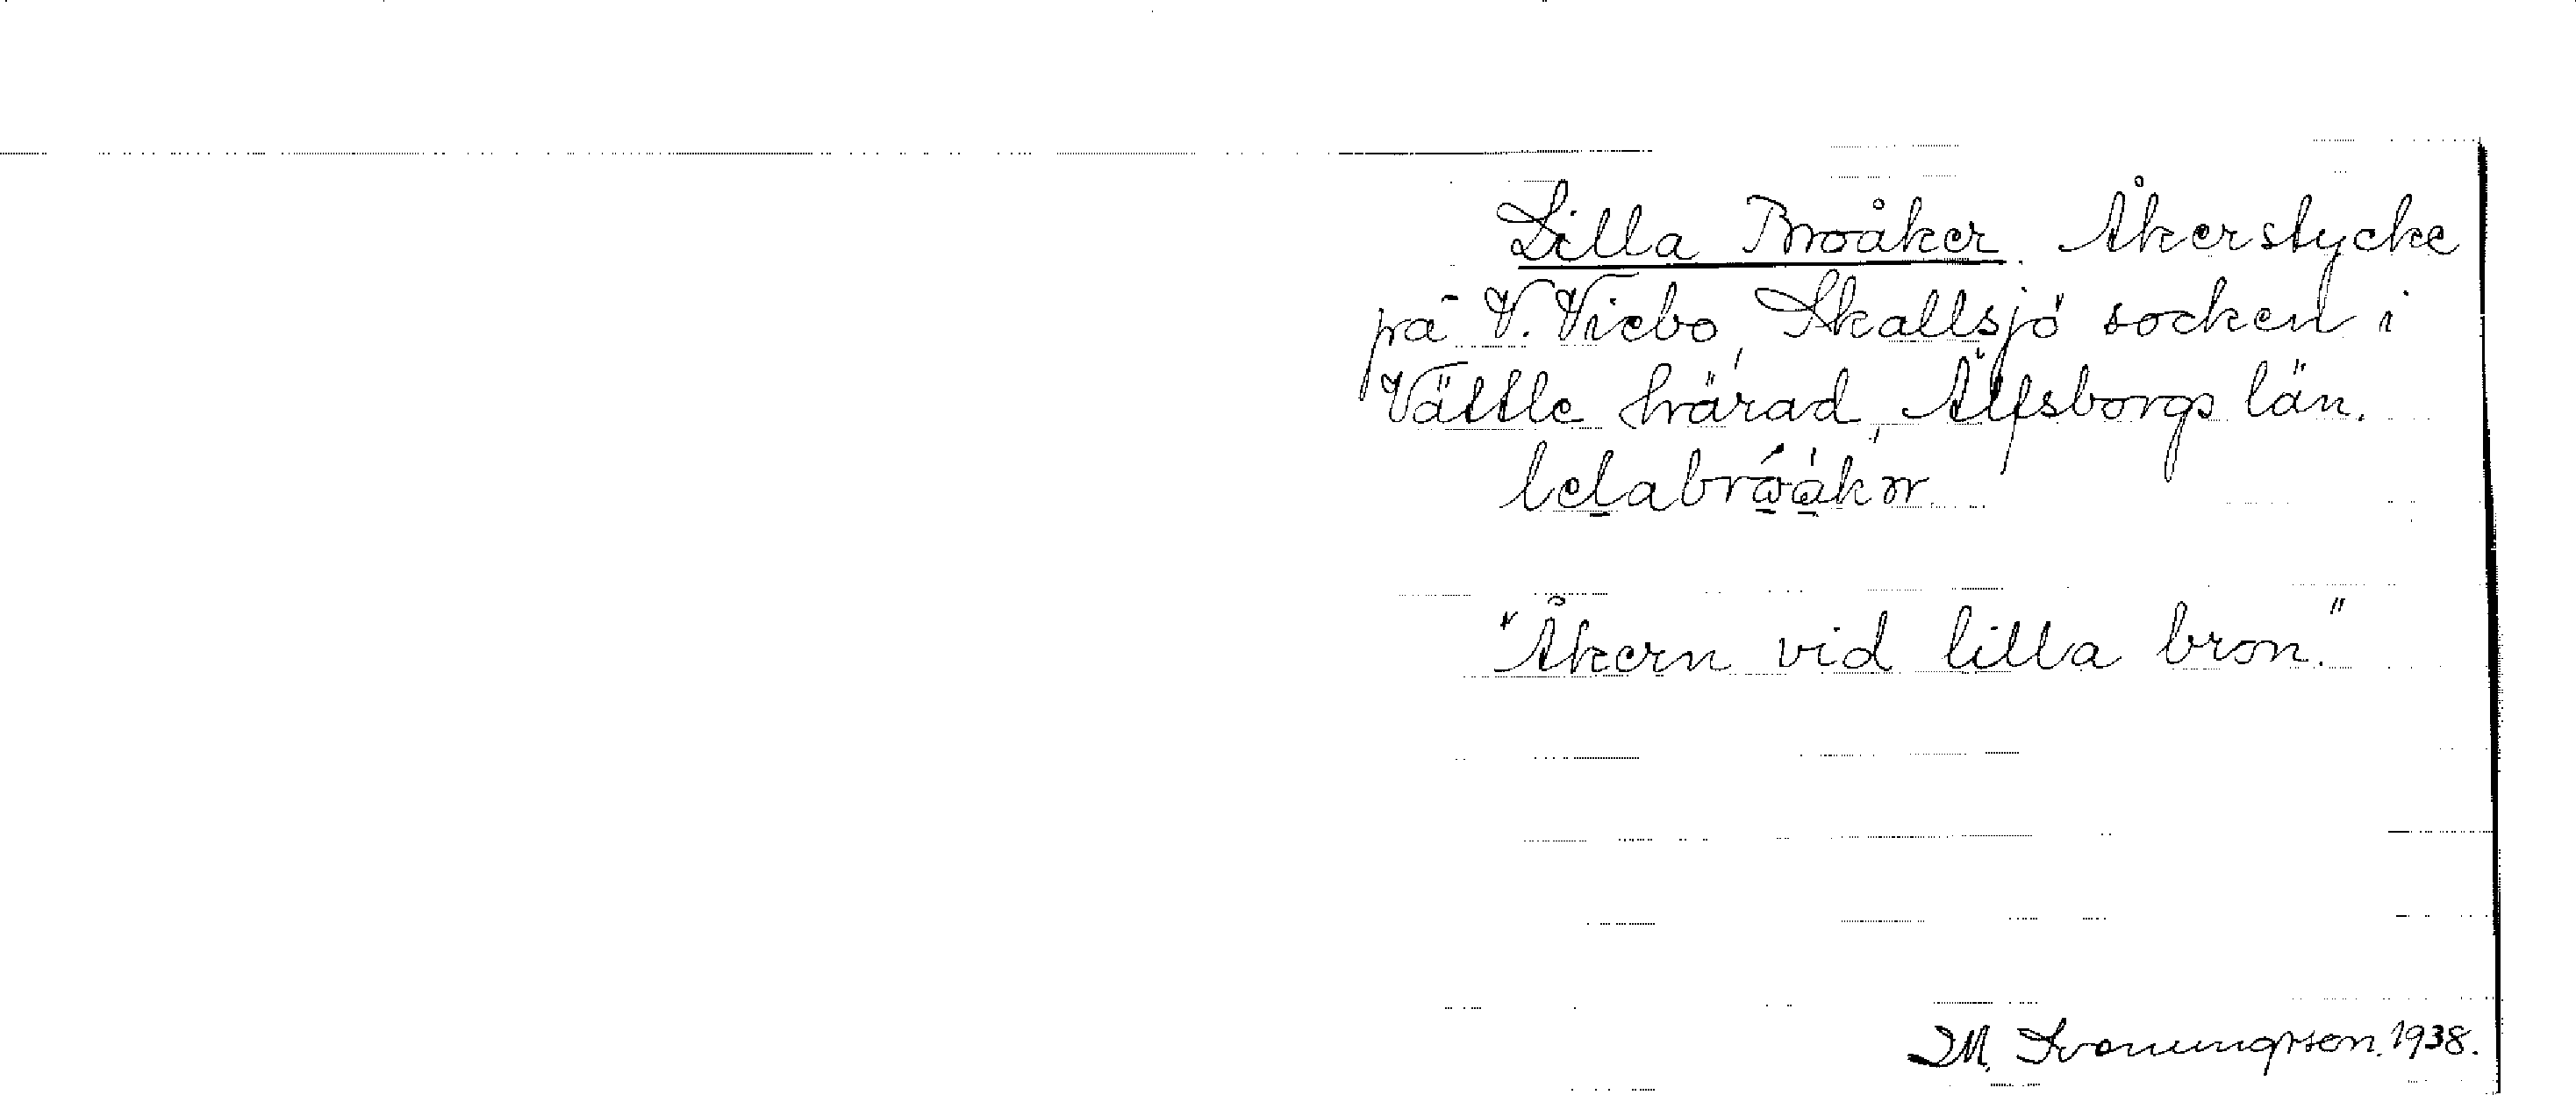 Lilla Broåker. Åkerstycke
på V. Viebo, Skallsjö socken i
Vättle härad, Älfsborgs län.
"Åkern vid lilla bron."
1938.